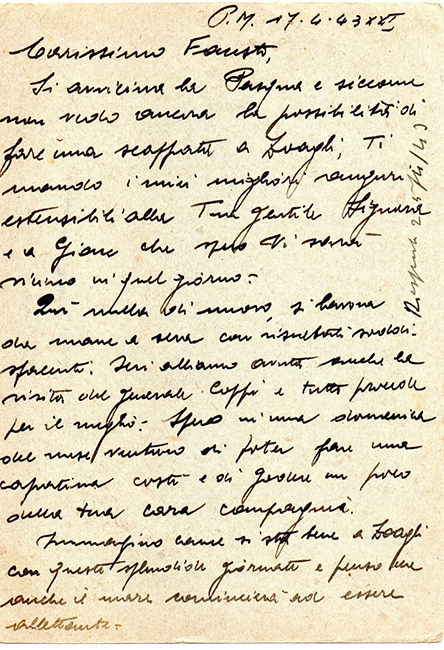 P.M. 17-4-43 XXI
Carissimo Fausto,
Si avvicina la Pasqua e siccome
non vedo ancora la possibilità di
fare una scappata a Zoagli, Ti
mando i miei migliori auguri
estensibili alla Tua gentile Signora
e a che spero Vi sarà
vicino in quel giorno =
Qui nulla di nuovo, si lavora
da mane a sera con risultati soddi-
sfacenti. Ieri abbiamo avuto anche la
visita del generale Coffi e tutto procede
per il meglio = Spero in una domenica
del mese venturo di poter fare una
capatina costì e di godere un poco
della tua cara compagnia.
Immagino come si stia bene a Zoagli
con queste splendide giornate e penso che
anche il mare comincierà ad essere
allettante =
25/4/43